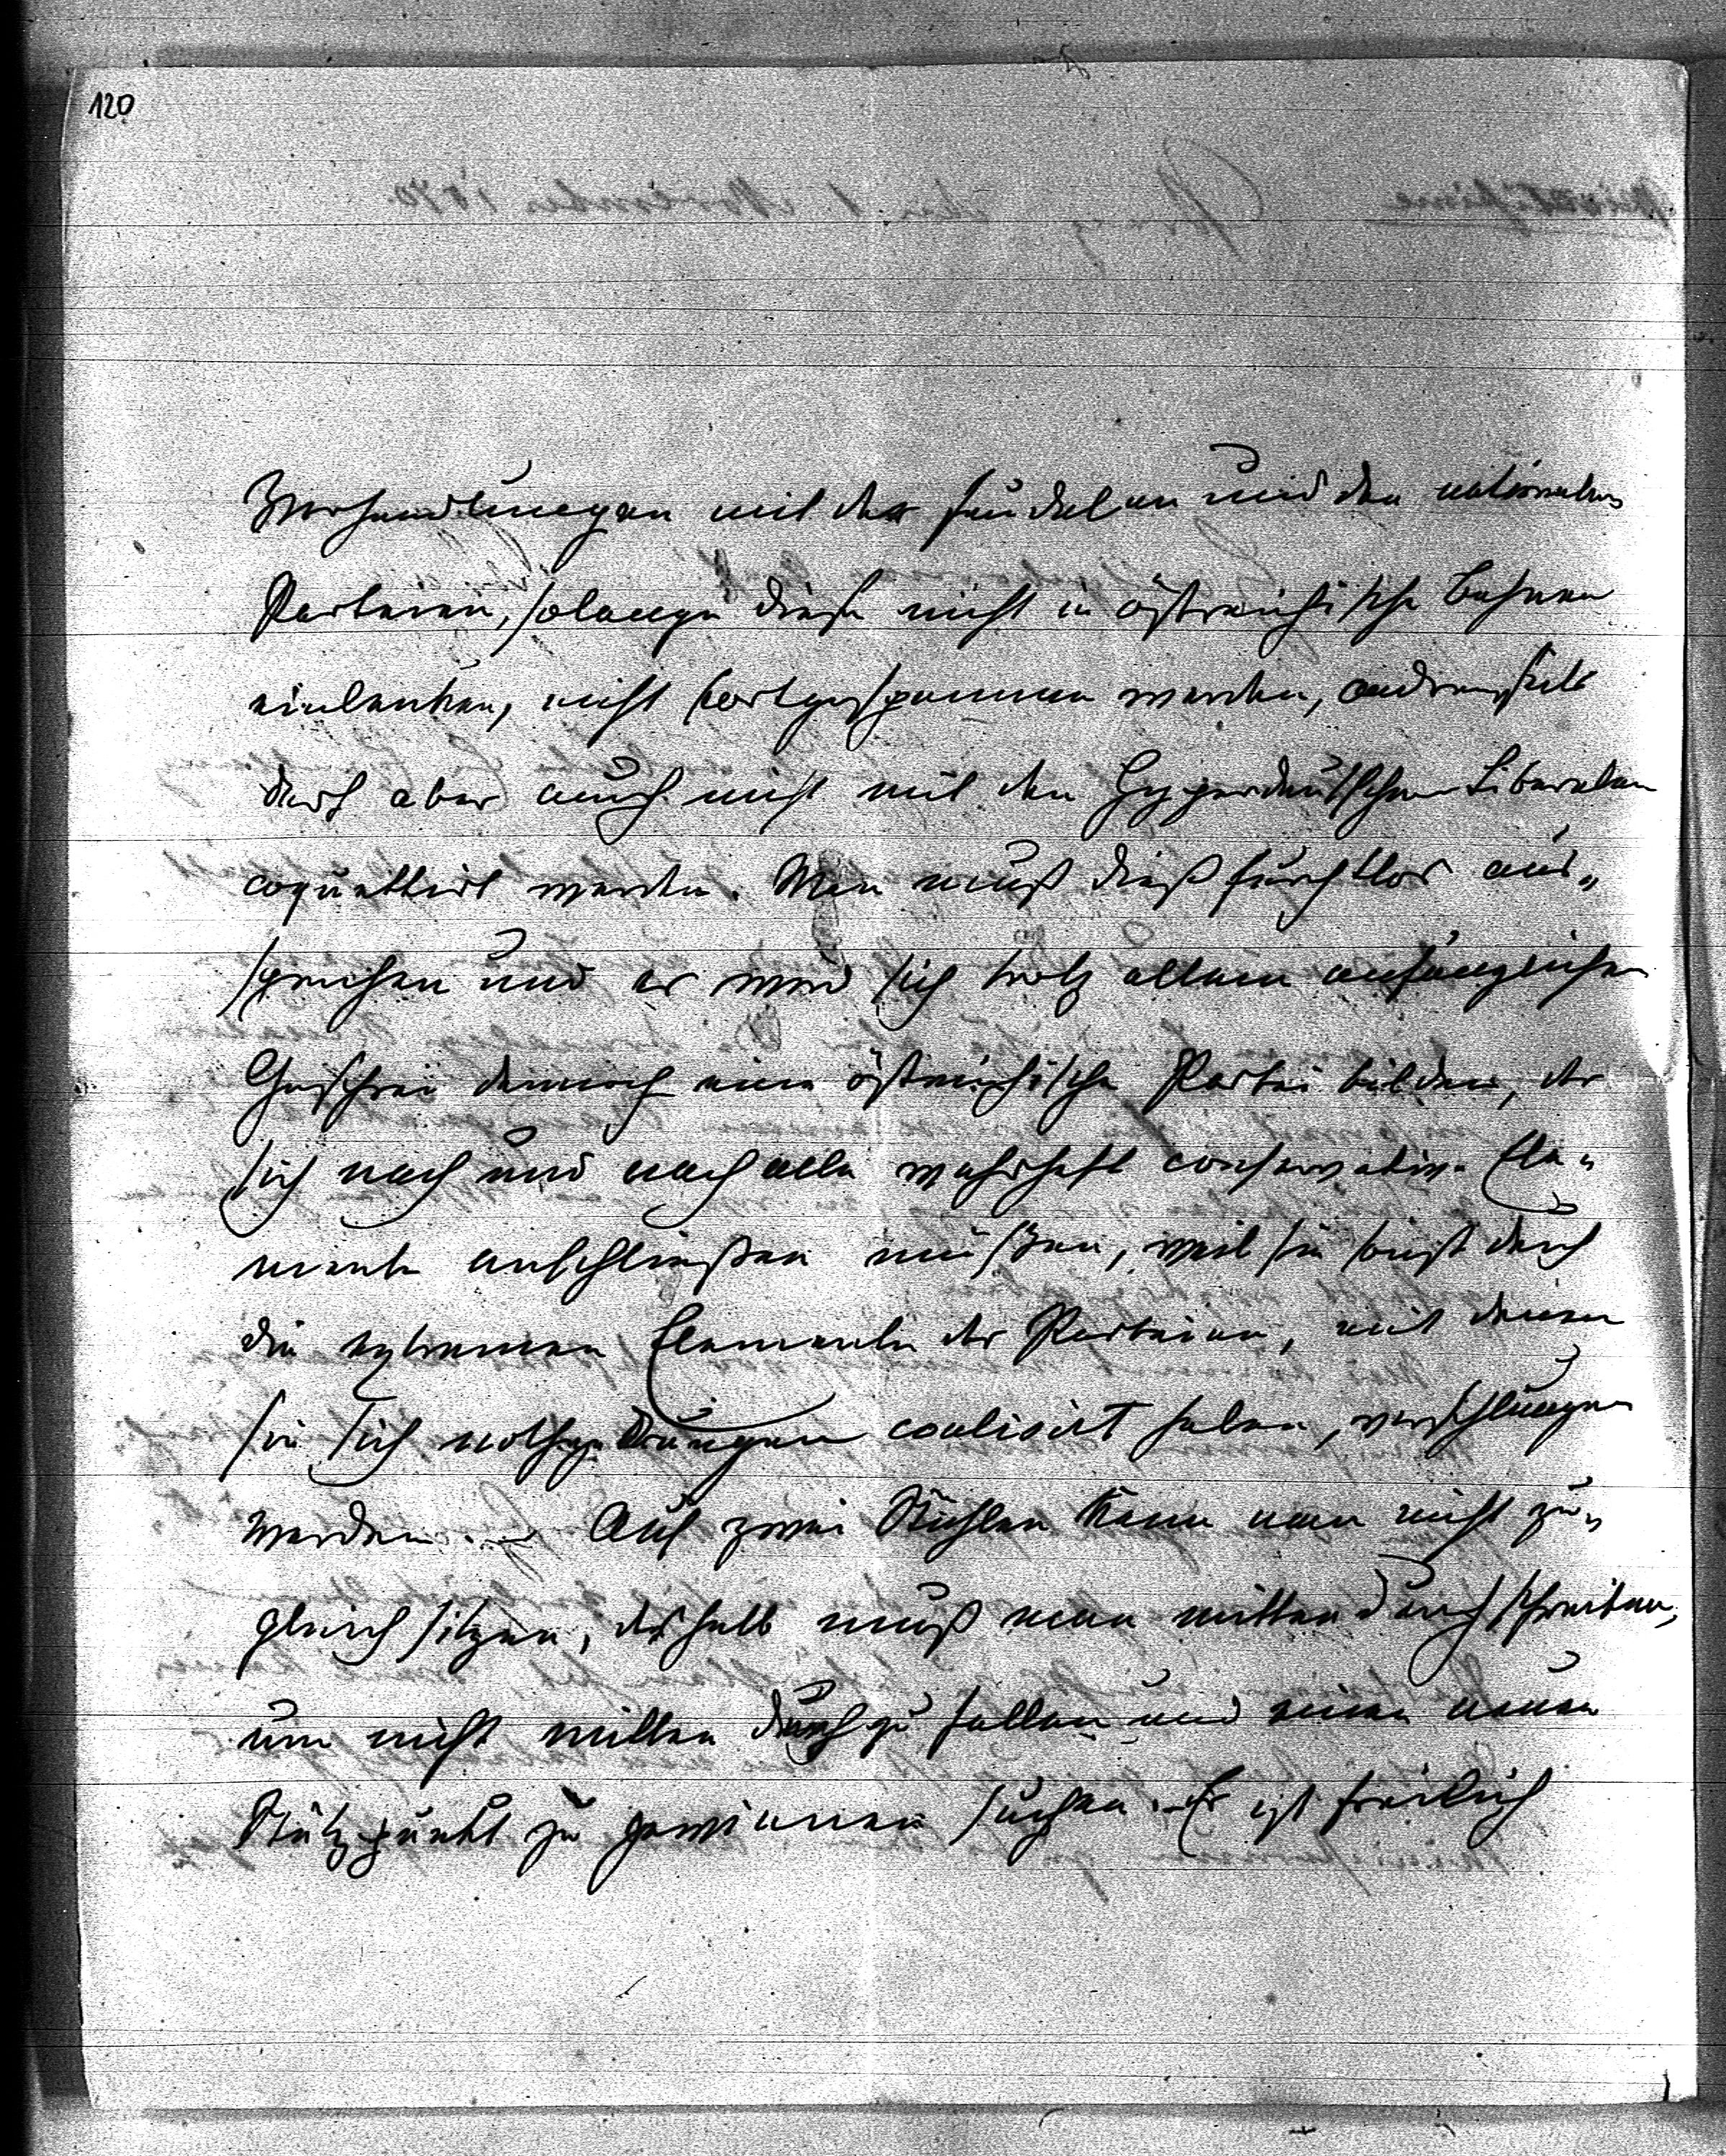 120
Verhandlungen mit den feudalen und den nationalen
Parteien, solange diese nicht in östreichische Bahnen
einlenken, nicht fortgesponnen werden, andrerseits
darf aber auch nicht mit den Hyperdeutschen Liberalen
coquettirt werden. Man muß dieß furchtlos aus„
sprechen und es wird sich trotz allem anfänglichen
Geschrei dennoch eine östreichische Partei bilden, der
sich nach und nach alle wahrhaft conservativen Ele„
mente anschließen müßen, weil sie sonst durch
die extremen Elemente der Parteien, mit denen
sie sich nothgedrungen coalisirt haben, verschlungen
werden. – Auf zwei Stühlen kann man nicht zu„
gleich sitzen, deshalb muß man mitten durch schreiten,
um nicht mitten durch zu fallen und einen neuen
Stützpunkt zu gewinnen suchen. – Es ist freilich